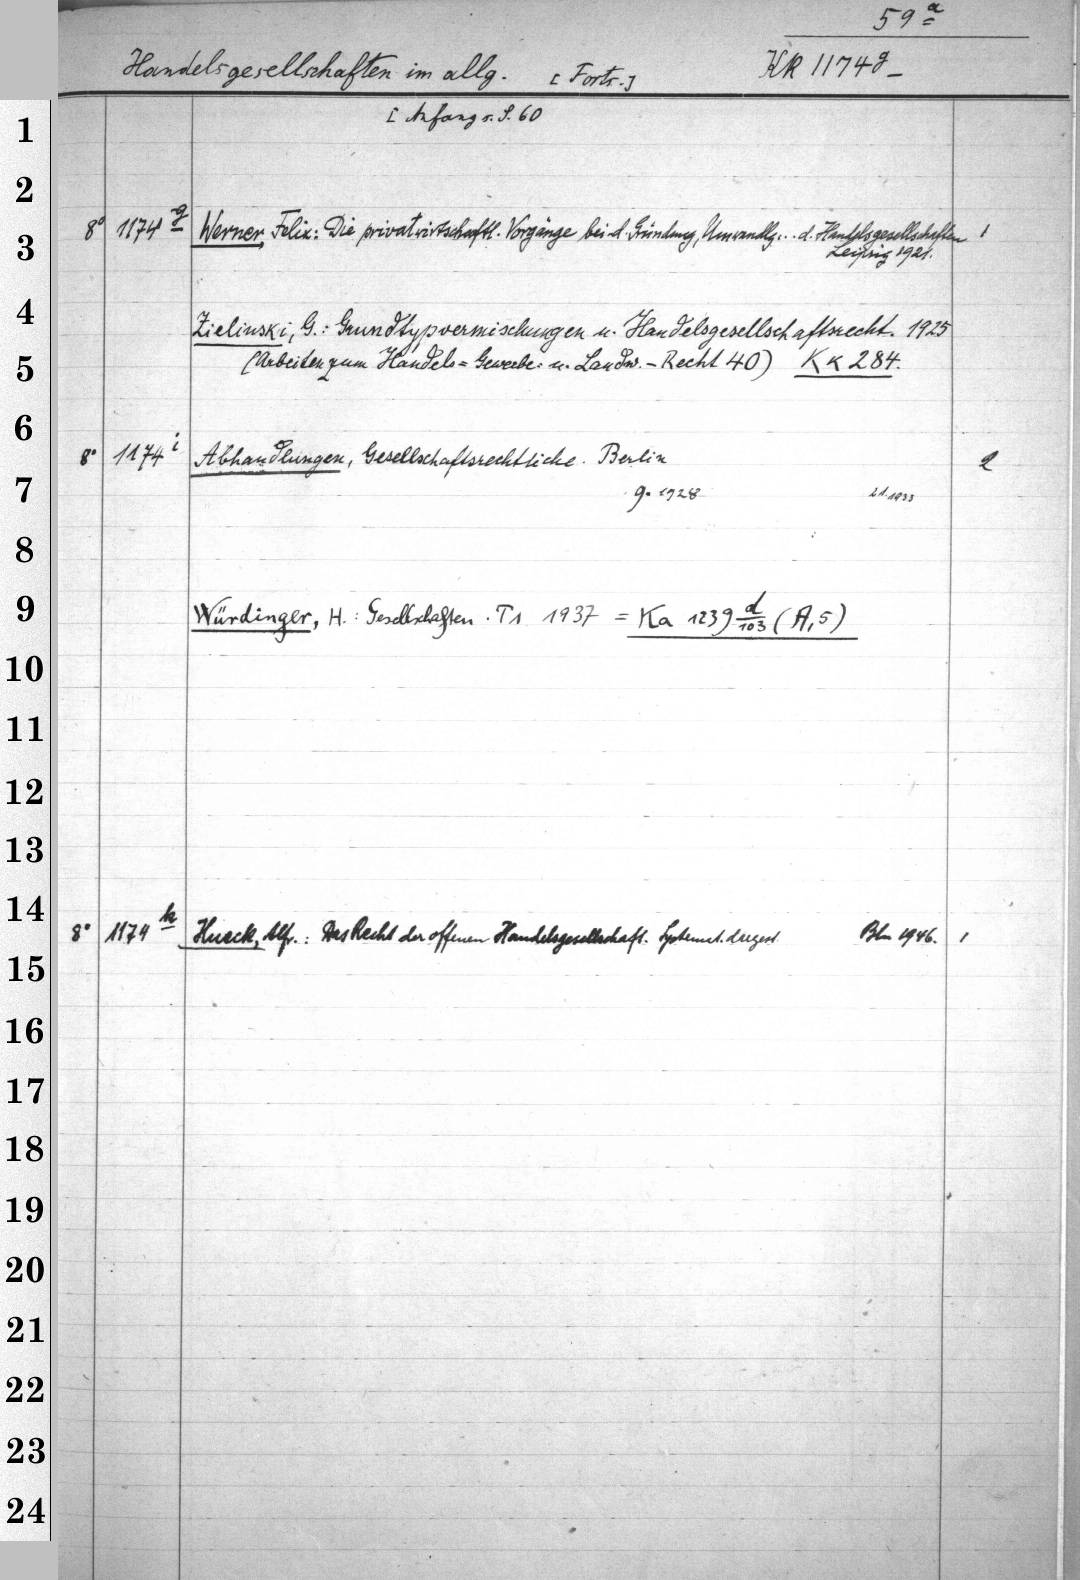 59 a
Handelsgesellschaften im allg. [Forts.] KK 1174 g_
[Anfang s. S. 60
1
2
8° 1174 g Werner, Felix: Die privatwirtschaftl. Vorgänge bei d. Gründung, Umwandlg. . . d. Handelsgesellschaften 1
3
Leipzig 1921.
4
Zielinski, G.: Grundtypvermischungen u. Handelsgesellschaftsrecht. 1925
5
(Arbeiten zum Handels= Gewerbe= u. Landw.-Recht 40) Kk 284.
6
8° 1174 i Abhandlungen, Gesellschaftsrechtliche. Berlin 2
7
9. 1928 21. 1933
8
9
Würdinger, H.: Gesellschaften. T1 1937 = Ka 1239 d/103 (A,5)
10
11
12
13
14
8° 1174 k Hueck, Alfr.: Das Recht der offenen Handelsgesellschaft. Systemat. dargest. Bln 1946. 1
15
16
17
18
19
20
21
22
23
24